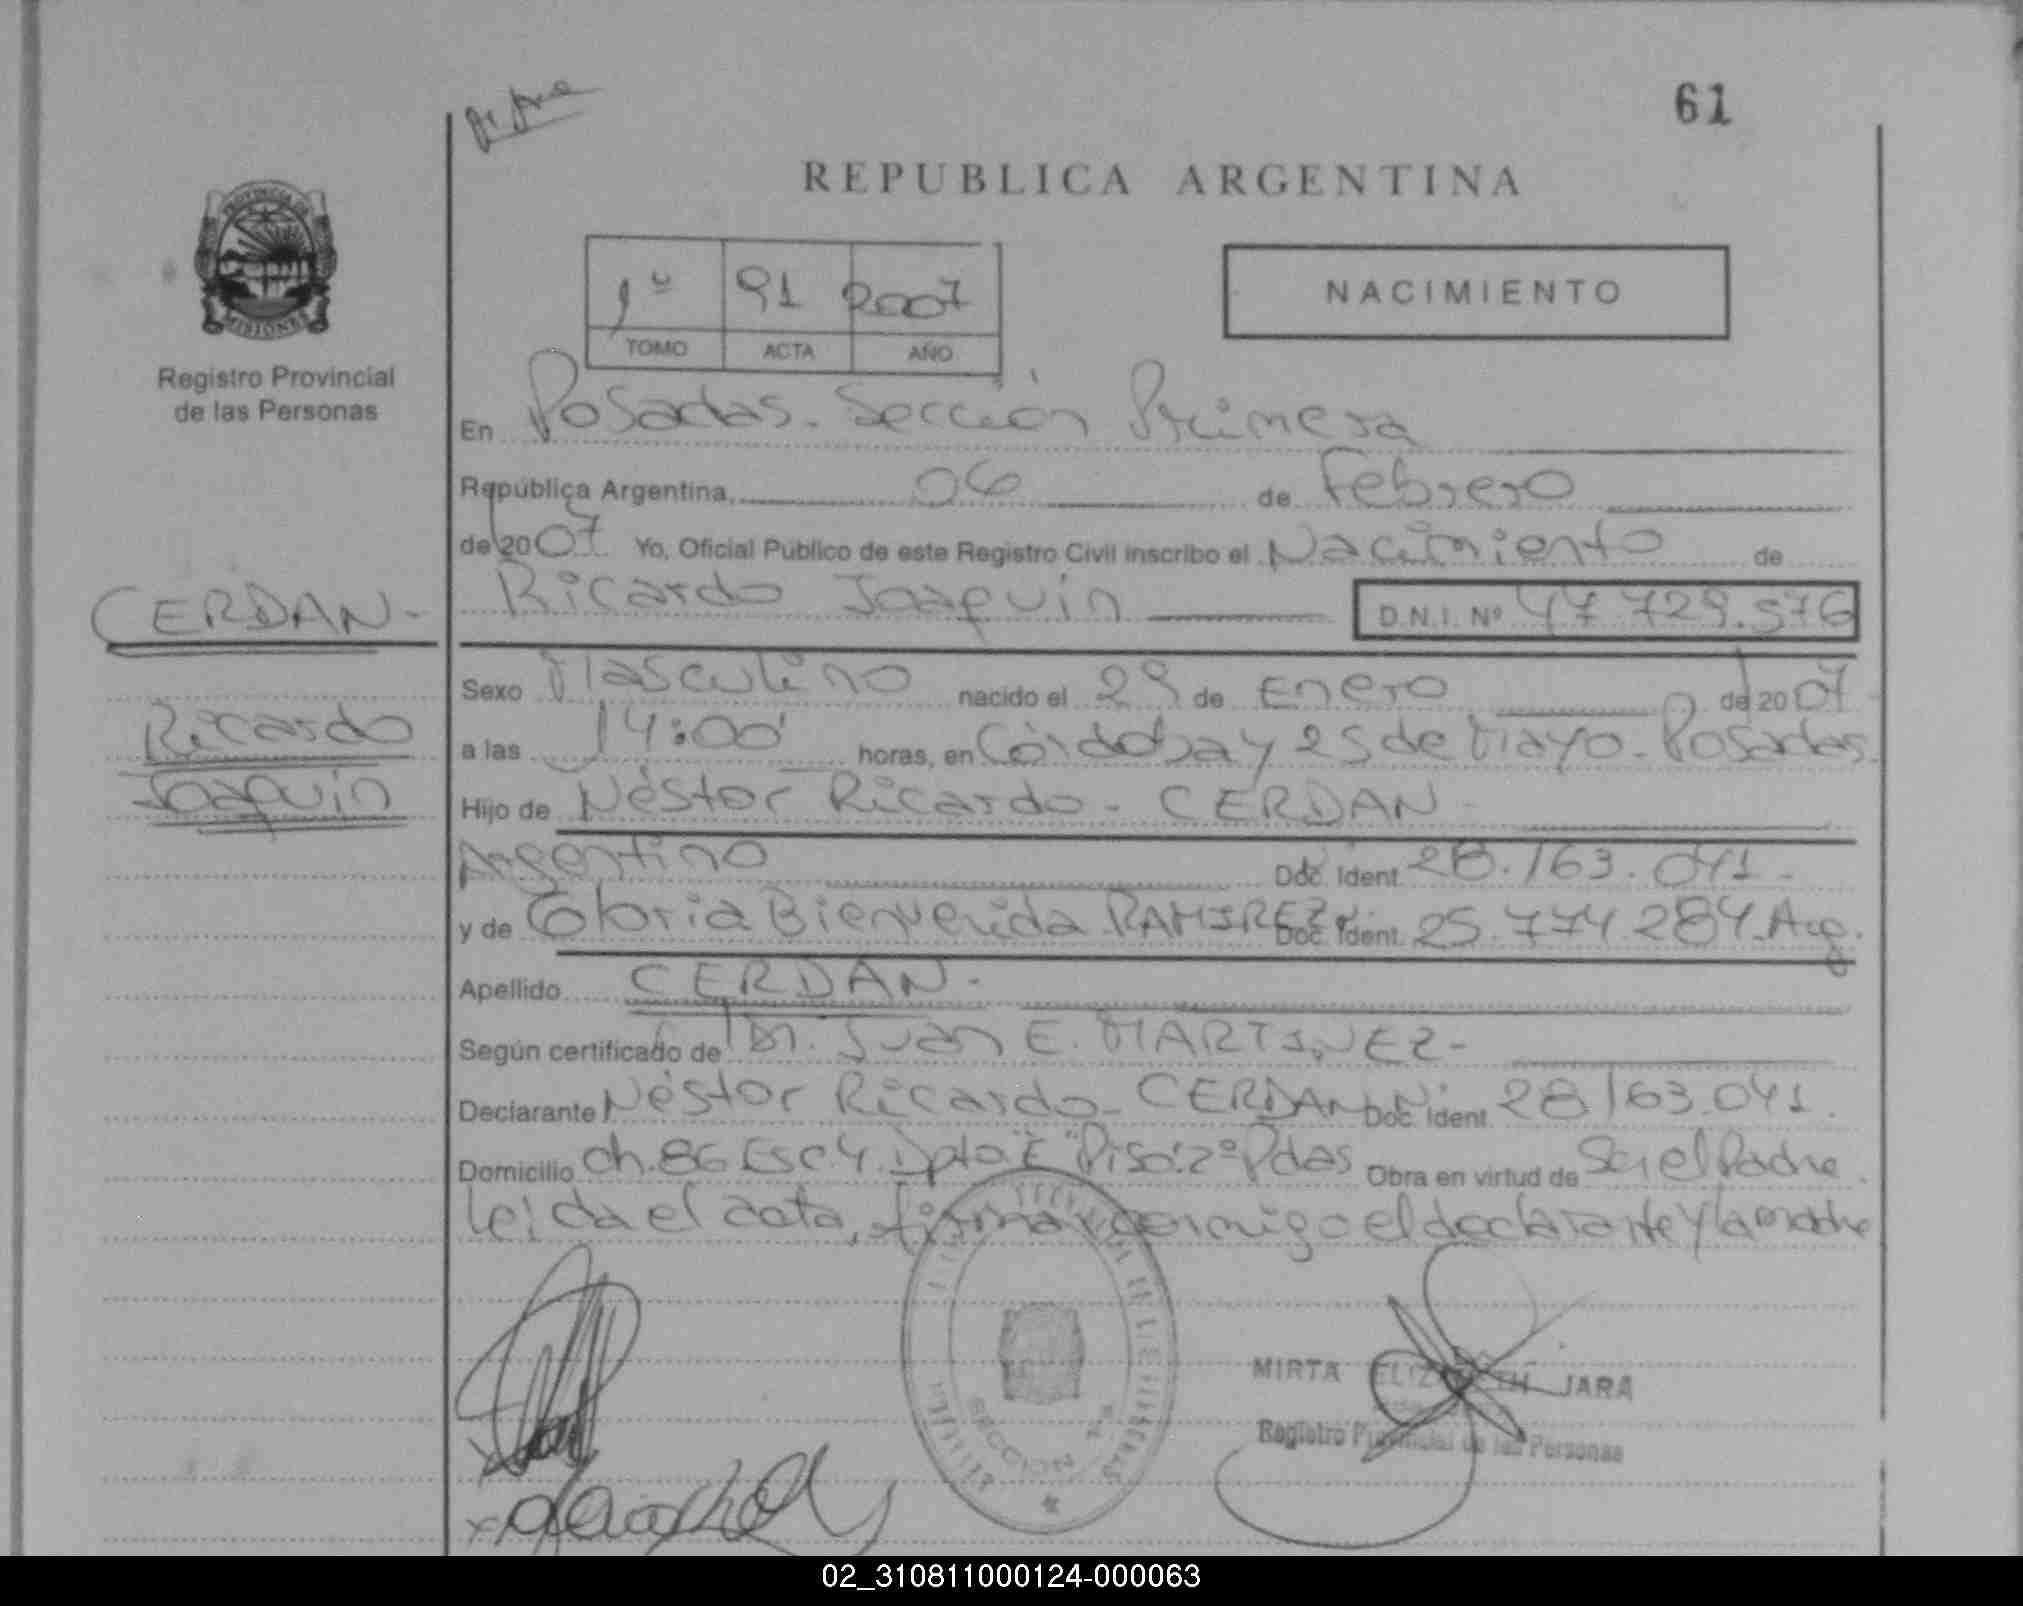 61
REPUBLICA ARGENTINA
PROVINCIA DE
MISIONES
Registro Provincial
de las Personas
1º 91 2007
TOMO ACTA AÑO
NACIMIENTO
En Posadas. Sección Primera
República Argentina, 06 de Febrero
de 2007 Yo, Oficial Público de este Registro Civil inscribo el Nacimiento de
CERDAN.-
Ricardo Joaquín D.N.I. Nº 47.729.576
Sexo Masculino nacido el 29 de Enero de 2007
Ricardo
Joaquín
a las 14:00 horas, en Córdoba y 25 de Mayo. Posadas.
Hijo de Néstor Ricardo - CERDAN -
Argentino Doc. Ident. 28.163.041.-
y de Gloria Bienvenida RAMIREZ Doc. Ident. 25.774.284. Arg.
Apellido CERDAN.-
Según certificado de Dr. Juan E. MARTINEZ-
Declarante Néstor Ricardo - CERDAN Doc. Ident. 28163.041.
Domicilio ch. 86 Esc. 4. Dpto "E" Piso: 2º Pdas Obra en virtud de Ser el Padre.
Leída el acta, firman conmigo el declarante y la madre
SECCION 1ª
MIRTA ELIZABETH JARA
Registro Provincial de las Personas
02_310811000124-000063